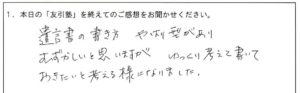 1．本日の「友引塾」を終えてのご感想をお聞かせください。
遺言書の書き方 やはり型があり
むずかしいと思いますが ゆっくり考えて書いて
おきたいと考える様になりました。